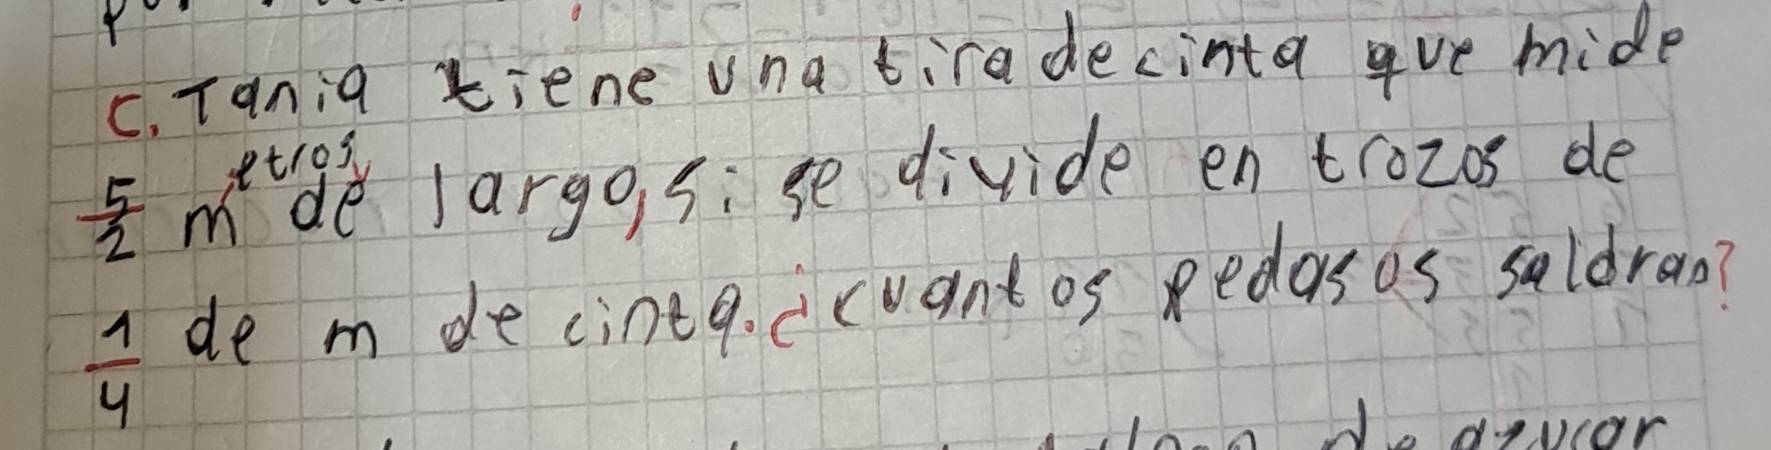 c. Tania tiene una tira de cinta que mide
5/2 metros de largo, si se divide en trozos de
1/4 de m de cinta. ¿cuantos pedasos saldran?
de azucar